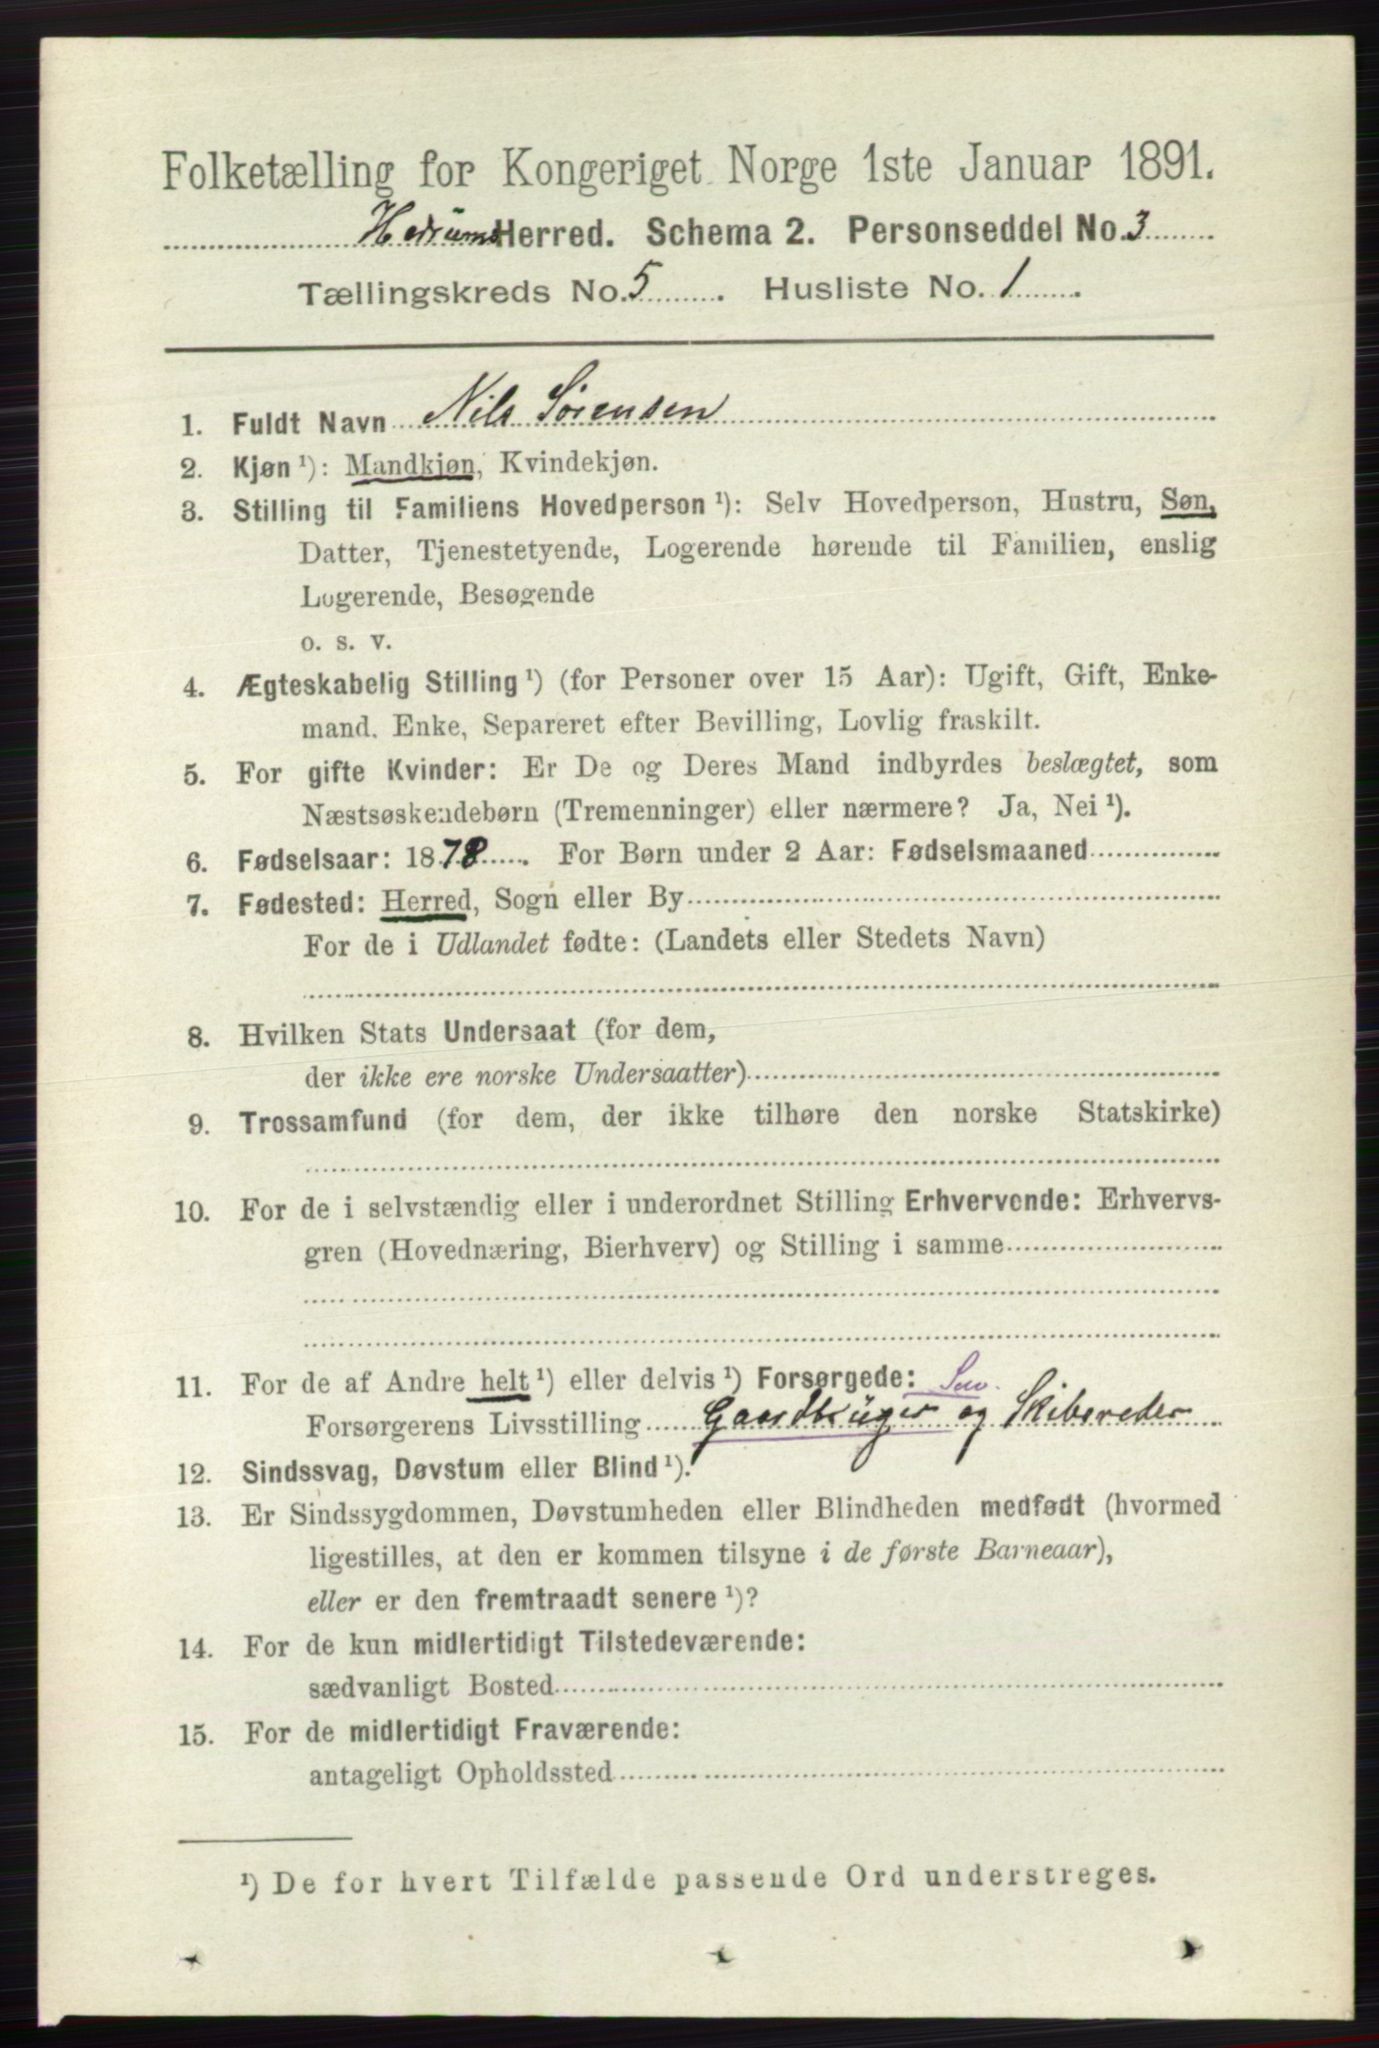 Folketælling for Kongeriget Norge 1ste Januar 1891.
Hedrums Herred. Schema 2. Personseddel No. 3
Tællingskreds No. 5. Husliste No. 1.
1. Fuldt Navn Nils Sørensen
2. Kjøn ¹): Mandkjøn, Kvindekjøn.
3. Stilling til Familiens Hovedperson ¹): Selv Hovedperson, Hustru, Søn,
Datter, Tjenestetyende, Logerende hørende til Familien, enslig
Logerende, Besøgende
o. s. v.
4. Ægteskabelig Stilling ¹) (for Personer over 15 Aar): Ugift, Gift, Enke-
mand, Enke, Separeret efter Bevilling, Lovlig fraskilt.
5. For gifte Kvinder: Er De og Deres Mand indbyrdes beslægtet, som
Næstsøskendebørn (Tremenninger) eller nærmere? Ja, Nei ¹).
6. Fødselsaar: 1878. For Børn under 2 Aar: Fødselsmaaned
7. Fødested: Herred, Sogn eller By
For de i Udlandet fødte: (Landets eller Stedets Navn)
8. Hvilken Stats Undersaat (for dem,
der ikke ere norske Undersaatter)
9. Trossamfund (for dem, der ikke tilhøre den norske Statskirke)
10. For de i selvstændig eller i underordnet Stilling Erhvervende: Erhvervs-
gren (Hovednæring, Bierhverv) og Stilling i samme
11. For de af Andre helt ¹) eller delvis ¹) Forsørgede:
Forsørgerens Livsstilling Gaardbruger og Skibsreder
12. Sindssvag, Døvstum eller Blind ¹).
13. Er Sindssygdommen, Døvstumheden eller Blindheden medfødt (hvormed
ligestilles, at den er kommen tilsyne i de første Barneaar),
eller er den fremtraadt senere ¹)?
14. For de kun midlertidigt Tilstedeværende:
sædvanligt Bosted
15. For de midlertidigt Fraværende:
antageligt Opholdssted
¹) De for hvert Tilfælde passende Ord understreges.